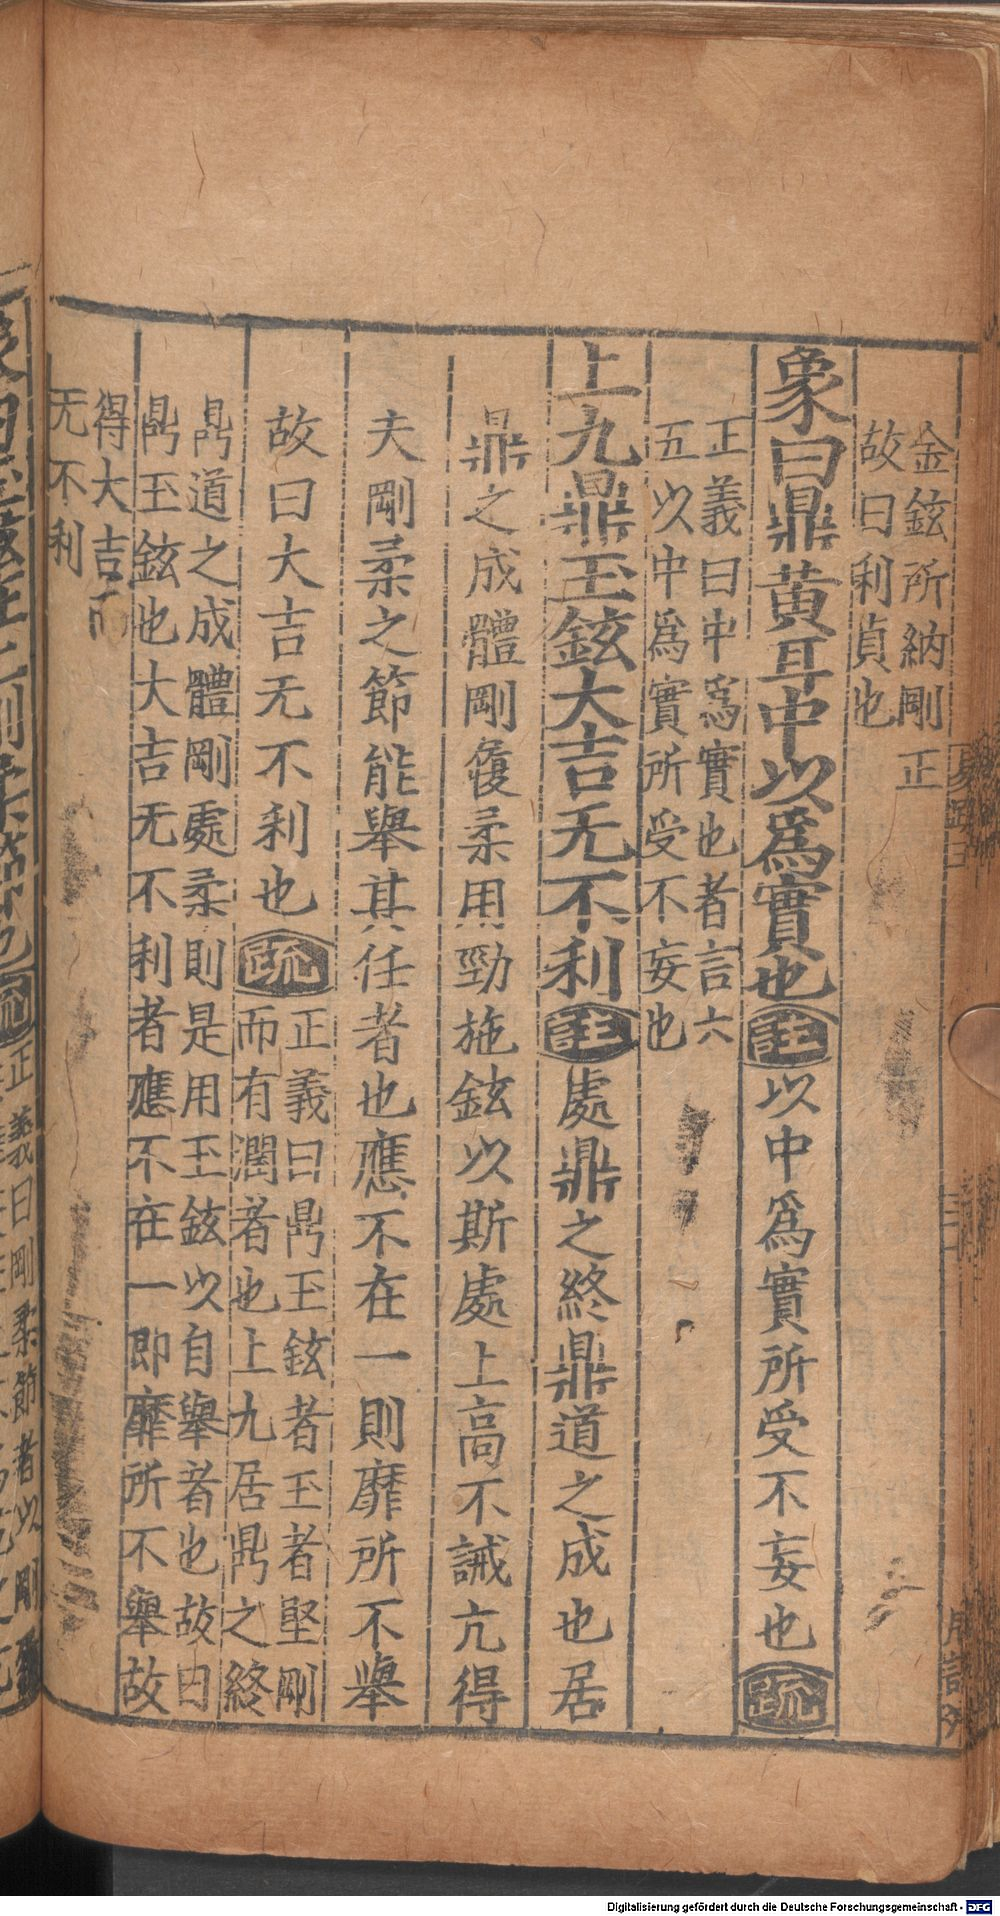 金鉉所納剛正
故曰利貞也
象曰鼎黃耳中以爲實也註以中爲實所受不妄也疏
正義曰中爲實也者言六
五以中爲實所受不妄也
上九鼎玉鉉大吉无不利註處鼎之終鼎道之成也居
鼎之成體剛履柔用勁施鉉以斯處上高不誡亢得
夫剛柔之節能舉其任者也應不在一則靡所不舉
故曰大吉无不利也疏
正義曰鼎玉鉉者玉者堅剛
而有潤者也上九居鼎之終
鼎道之成體剛處柔則是用玉鉉以自舉者也故曰
鼎玉鉉也大吉无不利者應不在一即靡所不舉故
得大吉而
无不利
正義曰剛柔節者以剛
Digitalisierung gefördert durch die Deutsche Forschungsgemeinschaft - DFG